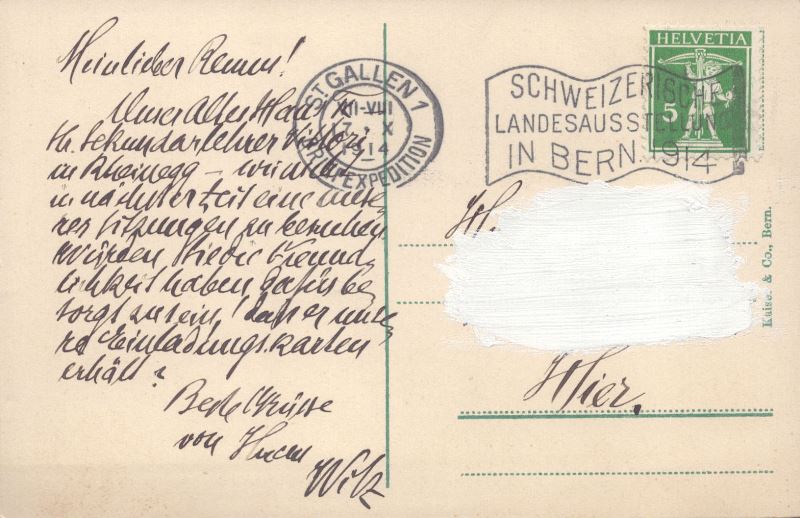 Mein lieber Remus!
Unser Alter Haus
Hr. Sekundarlehrer
in Rheinegg – wünscht
in nächster Zeit eine
Sitzungen zu besuchen
Würden Sie die Freund-
lichkeit haben dafür be
sorgt zu sein, dass er unse
re Einladungskarten
erhält?
Beste Grüsse
von Ihrem
Wilk
ST. GALLEN 1
XII-VIII
17. X
1914
BRIEFEXPEDITION
SCHWEIZERISCHE
LANDESAUSSTELLUNG
IN BERN 1914
HELVETIA
5
Hr.
Hier.
Kaiser & Co., Bern.